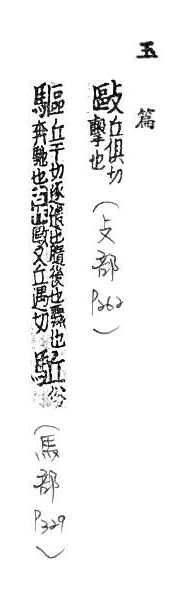 玉篇
敺丘俱切擊也(攴部P262)
驅丘于切逐遣也隨後也驟也奔馳也古作敺又丘遇切駈俗(馬部P329)